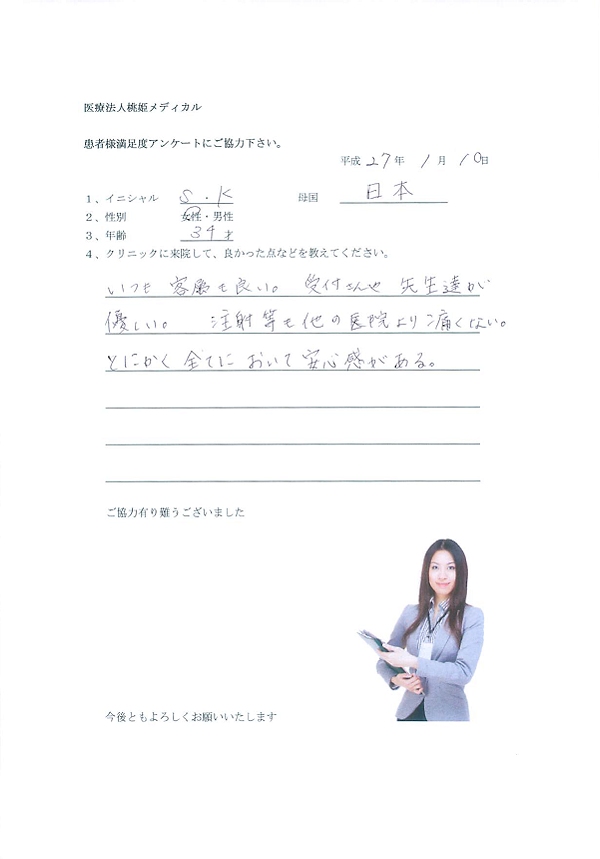 医療法人桃姫メディカル
患者様満足度アンケートにご協力下さい。
平成 27年 1月 10日
1、イニシャル S.K 母国 日本
2、性別 女性・男性
3、年齢 34才
4、クリニックに来院して、良かった点などを教えてください。
いつも 客層も良い。 受付さんや 先生達が
優しい。 注射等も他の医院より痛くない。
とにかく 全てに おいて 安心感がある。
ご協力有り難うございました
今後ともよろしくお願いいたします